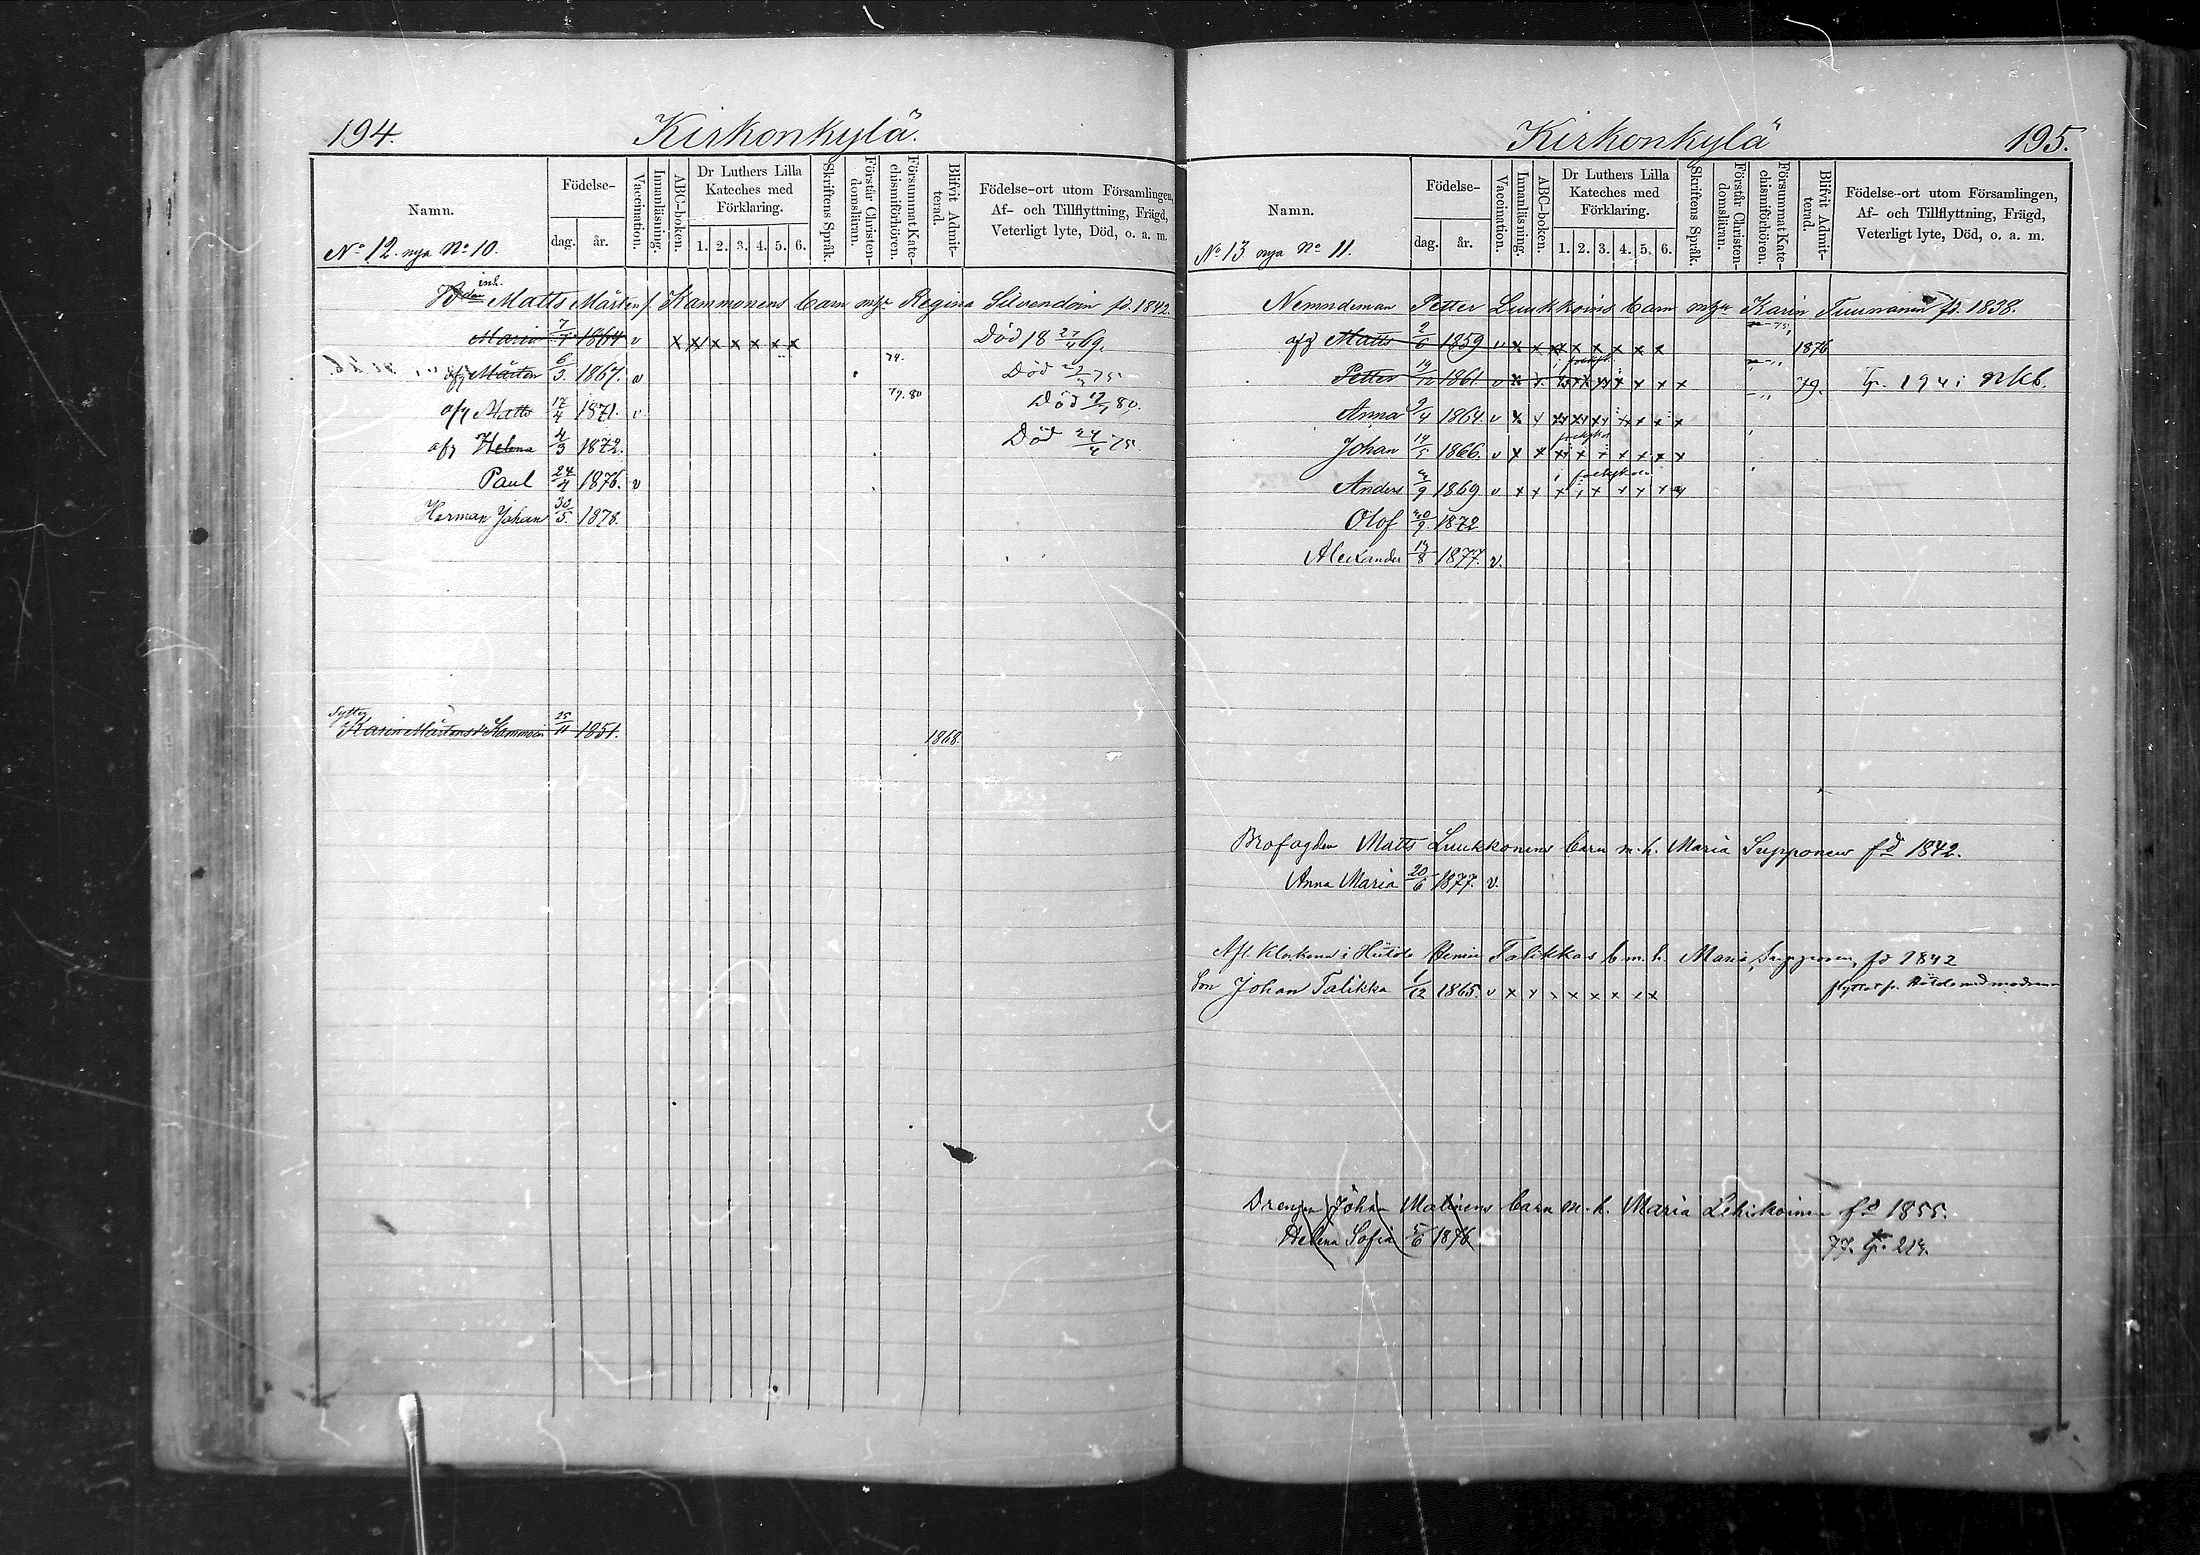 194.
Kirkonkylä.
Namn.
Födelse-
dag.
år.
Vaccination.
Innanläsning.
ABC-boken.
Dr Luthers Lilla
Kateches med
Förklaring.
1. 2. 3. 4. 5. 6.
Skriftens Språk.
Förstår Christen-
domsläran.
Försummat Kate-
chismiförhören.
Blifvit Admit-
terad.
Födelse-ort utom Församlingen,
Af- och Tillflyttning, Frägd,
Veterligt lyte, Död, o. a. m.
No 12. nya No 10.
inh.
Matts Mårten s. Kammonens barn m hu Regina Silvendoin fd. 1842.
Maria 7/1 1864 v x x x x x x x Död 18 27/4 69.
afg Mårten 6/3 1867. v 74. Död 75
afg Matts 17/4 1871. v 79. 80 Död 80.
afg Helena 4/3 1872. Död 24/4 75.
Paul 24/4 1876. v
Herman Johan 30/5. 1878.
Sytter
Karin Mårtens dr Kammoin 25/11 1851. 1868.
Kirkonkylä
195.
Namn.
Födelse-
dag.
år.
Vaccination.
Innanläsning.
ABC-boken.
Dr Luthers Lilla
Kateches med
Förklaring.
1. 2. 3. 4. 5. 6.
Skriftens Språk.
Förstår Christen-
domsläran.
Försummat Kate-
chismiförhören.
Blifvit Admit-
terad.
Födelse-ort utom Församlingen,
Af- och Tillflyttning, Frägd,
Veterligt lyte, Död, o. a. m.
No 13. nya No 11.
Nemndeman Petter Luukkoins barn m hu Karin Tuunanen fd. 1838.
afg Matts 2/6 1859 v x x x x x x x x 1876
Petter 19/12 1861. v x x x x x x x x x 79. Tr. 194 i nkb.
Anna 9/4 1864. v x x x x x x x x x
Johan 14/5 1866. v x x x x x x x x x
Anders 9 1869 v x x x x x x x x
Olof 20/9. 1872
Alexander 14/8 1877. v.
Brofogden Matts Luukkonens barn m. h. Maria Supponen fd 1842.
Anna Maria 20/6 1877. v.
Afl. Klockaren i Hiitola Talikkas b m. h. Maria Supponen, fd 1842
Son Johan Talikka 1/12 1865. v x x x x x x x x flyttat fr. Hiitola med modren
Drengen Johan Matinens barn m. h. Maria Lehikoinen fd 1855.
Helena Sofia 5/6 1876 77. Tr. 214.